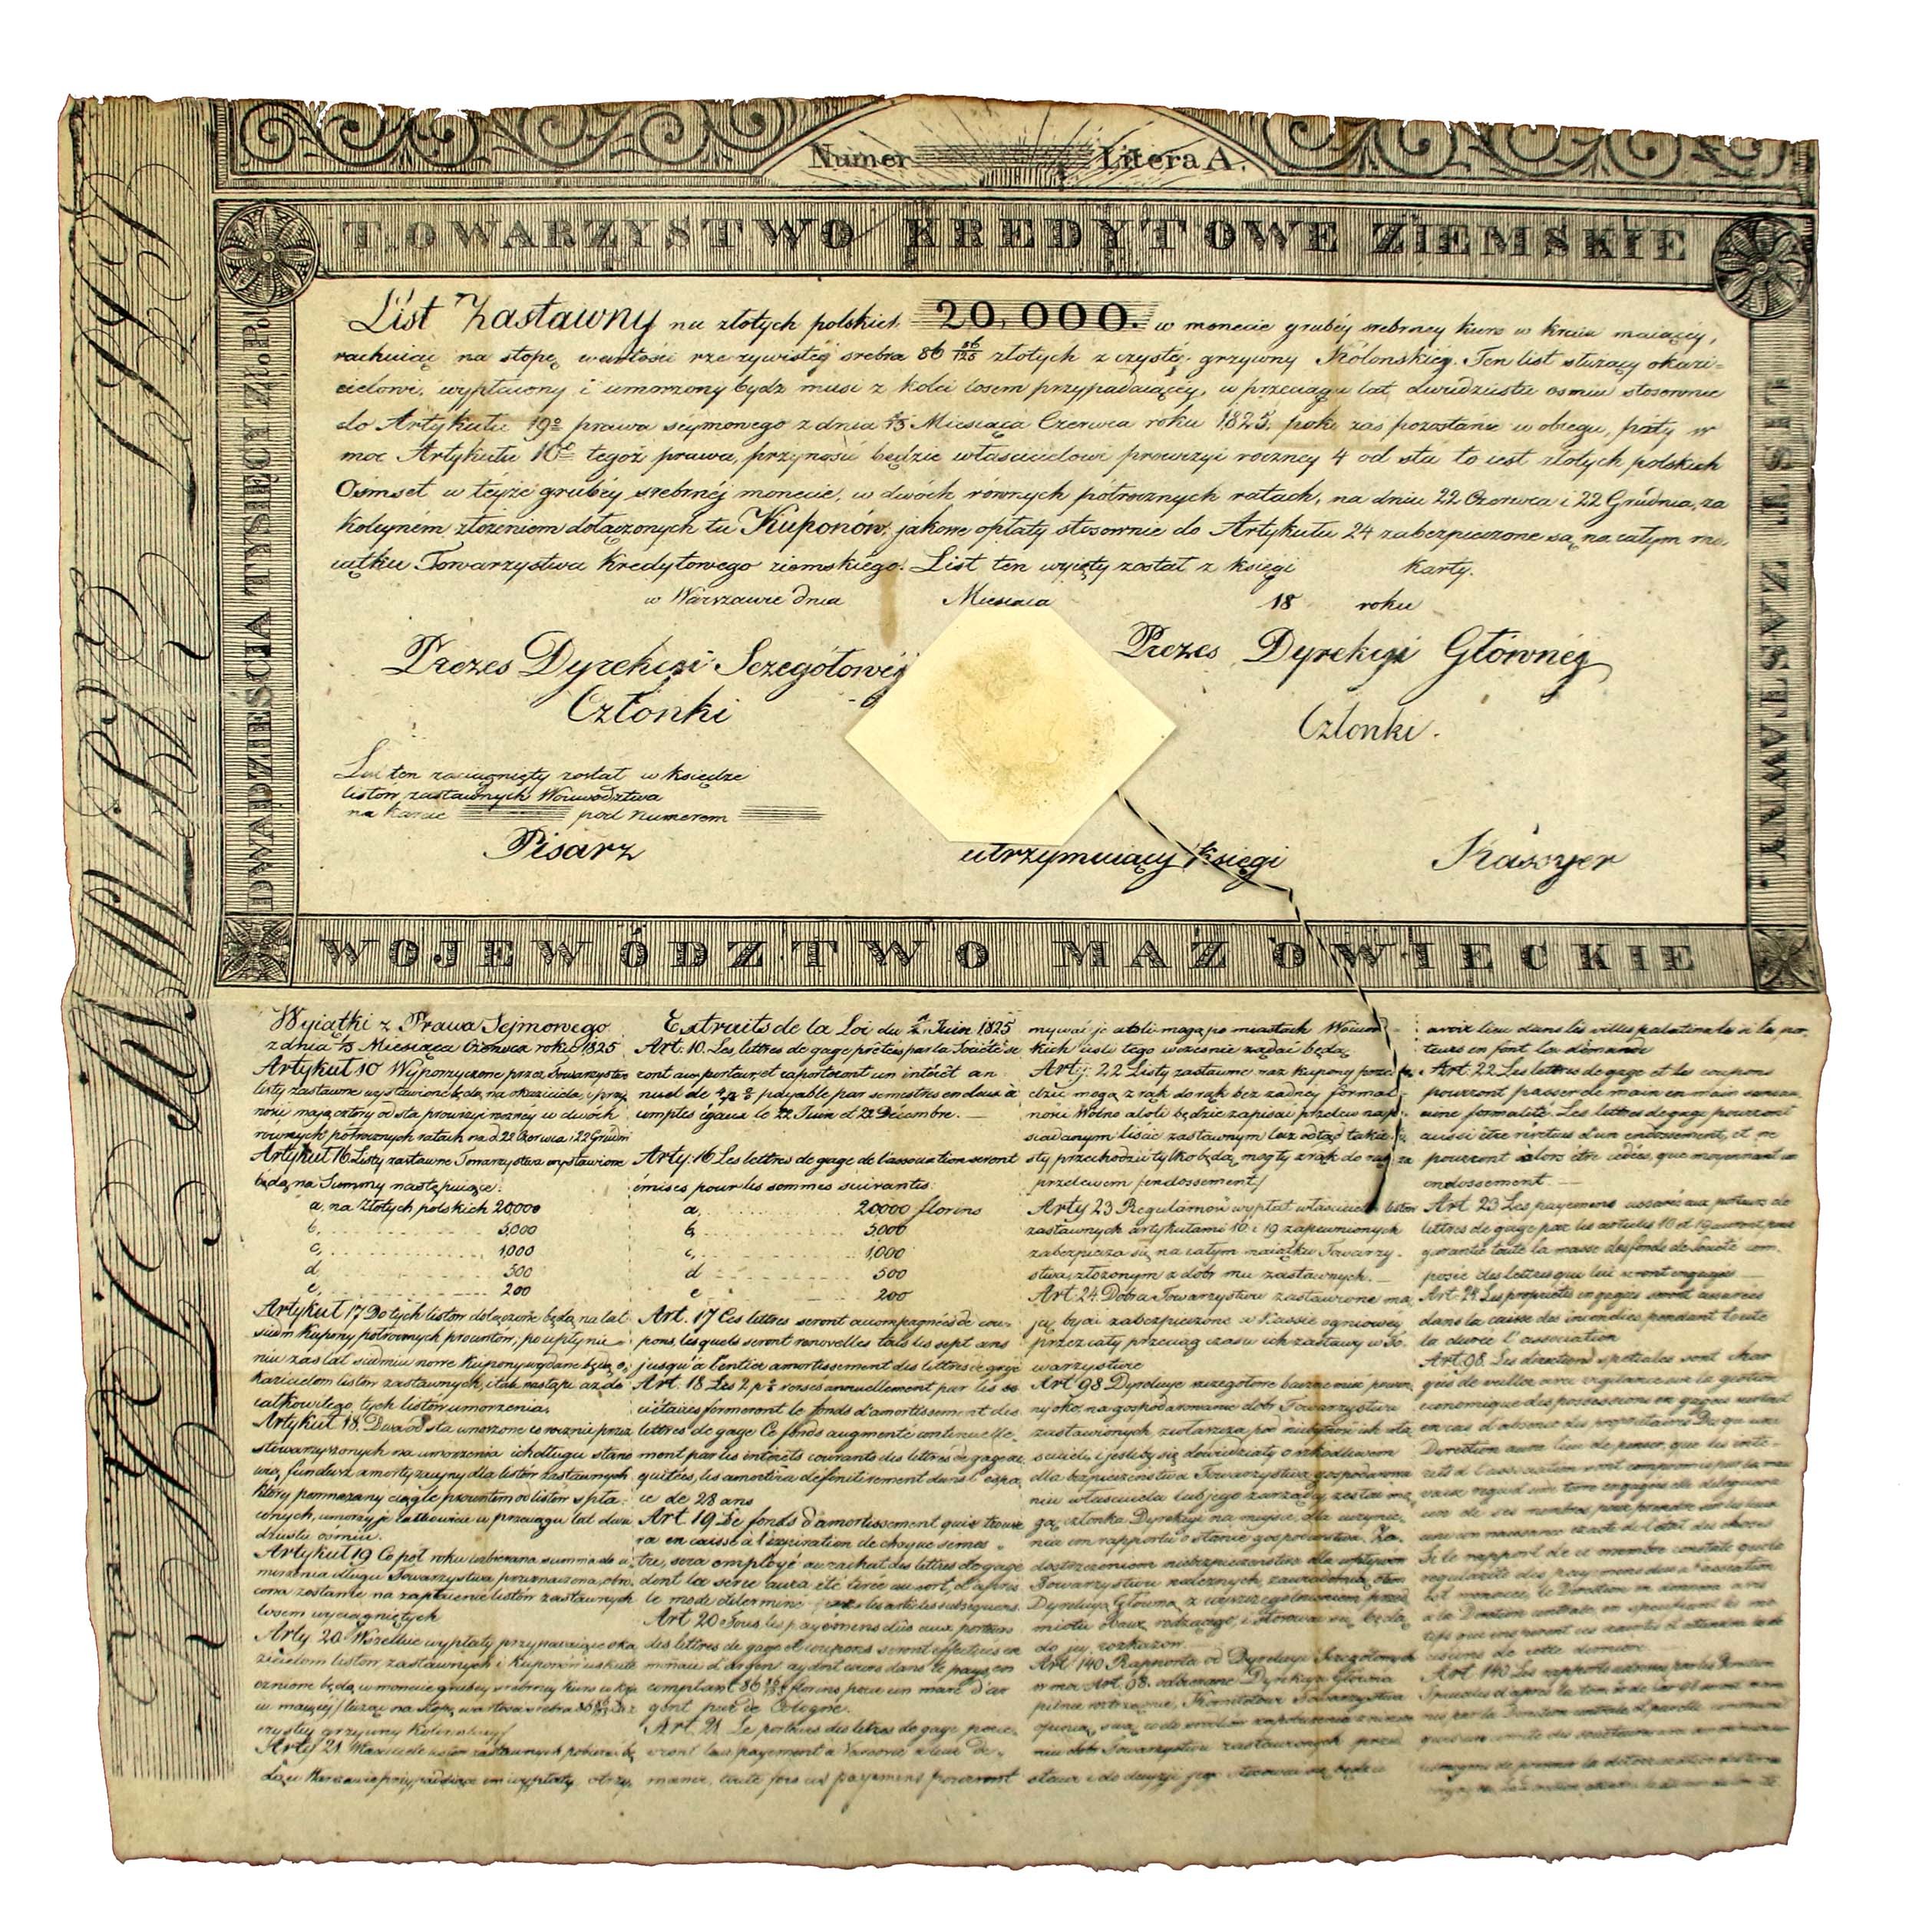 Numer Litera A.
TOWARZYSTWO KREDYTOWE ZIEMSKIE
DWADZIEŚCIA TYSIĘCY Zło: Pol
LIST ZASTAWNY.
List Zastawny na złotych polskich 20,000. w monecie grubéy srebrney kurs w kraiu maiącéy,
rachuiąc na stopę wartości rzeczywistéy srebra 86 86/125 złotych z czystéy grzywny Kolonskiéy. Ten list służący okazi=
cielowi, wypłacony i umorzony bydź musi z kolei losem przypadaiącéy, w przeciągu lat dwudziestu ośmiu stosownie
do Artykułu 19º prawa séymowego z dnia 1/13 Miesiąca Czerwca roku 1825, poki zaś pozostanie w obiegu, póty w
moc Artykułu 10º tegoż prawa, przynosić będzie właścicielowi prowizyi roczney 4 od sta to iest złotych polskich
Ośmset w teyże grubéy srebrnéj monecie, w dwóch równych półrocznych ratach, na dniu 22 Czerwca i 22 Grudnia, za
koleyném złożeniem dołączonych tu Kuponów, jakowe opłaty stosownie do Artykułu 24 zabezpieczone są na całym ma-
iątku Towarzystwa Kredytowego ziemskiego. List ten wyięty został z księgi karty.
w Warszawie dnia Miesiąca 18 roku
Prezes Dyrekcyi Sczegółowéy
Prezes Dyrekcyi Głównéy
Członki
Członki.
List ten zaciągnięty został w księdze
listów zastawnych Woiewodztwa
na karcie pod numerem
Pisarz utrzymuiący księgi Kassyer
WOJEWÓDZTWO MAZOWIECKIE
Wyiątki z Prawa Sejmowego
z dnia 1/13 Miesiąca Czerwca roku 1825
Artykuł 10 Wypożyczone przez Towarzystwo
listy zastawne wystawione będą na okaziciela, i przy
nosić mają cztery od sta prowizyi roczney w dwóch
równych półrocznych ratach na d. 22 Czerwca i 22 Grudni
Artykuł 16 Listy zastawne Towarzystwa wystawione
będą na Summy następuiące:
a, na Złotych polskich 20,000
b, 5,000
c, 1,000
d, 500
e, 200
Artykuł 17 Do tych listów dołączone będą na lat
siedm Kupony półrocznych procentów, po upłynie=
niu zaś lat siedmiu nowe Kupony wydane będą o=
kazicielom listów zastawnych, i tak nastąpi aż do
całkowitego tych listów umorzenia.
Artykuł 18. Dwa od sta wnoszone co rocznie przez
stowarzyszonych na umorzenie ich długu stano
wią, fundusz amortyzacyjny dla listów zastawnych
który pomnażany ciągle procentem od listów spła=
conych, umorzy je całkowicie w przeciągu lat dwu
dziestu ośmiu.
Artykuł 19 Co pół roku uzbierana summa do u
morzenia długu Towarzystwa przeznaczona, obró
cona zostanie na zapłacenie listów zastawnych
losem wyciągniętych
Arty. 20 Wszelkie wypłaty przypadaiące oka
zicielom listów zastawnych i kuponów uskute
cznione będą w monecie grubey srebrney kurs w kra
iu maiącéy / licząc na stopę wartości srebra 86 86/125 Zł. z
czystey grzywny Kolonskiey/
Arty 21 Właściciele listów zastawnych pobierać bę
dą w Warszawie przypadaiące im wypłaty, otrzy
Extraits de la Loi du 1/13 Juin 1825
Art. 10. Les lettres de gage prêtées par la Société se
ront au porteur, et rapporteront un intérêt an
nuel de 4 p % payable par semestres en deux à
comptes égaux le 22 Juin et 22 Décembre.
Arty. 16 Les lettres de gage de l'association seront
émises pour les sommes suivantes:
a, 20000 florins
b, 5000
c, 1,000
d 500
e 200
Art. 17 Ces lettres seront accompagnées de cou=
pons, lesquels seront renouvelés tous les sept ans
jusqu'à l'entier amortissement des lettres de gage
Art. 18 Les 2 p % versés annuellement par les so
ciétaires formeront le fonds d'amortissement des
lettres de gage Ce fonds augmenté continuelle=
ment par les intérêts courants des lettres de gage ac
quittées, les amortira définitivement dans l'espa
ce de 28 ans
Art. 19 Le fonds d'amortissement qui se trouve
ra en caisse à l'expiration de chaque semes=
tre, sera employé au rachat des lettres de gage
dont la série aura été tirée au sort, d'après
le mode déterminé les articles subséquens.
Art 20 Tous les payémens dûs aux porteurs
des lettres de gage et coupons seront effectués en
monnaie d'argent ayant cours dans le pays, en
comptant 86 86/125 florins pour un marc d'ar
gent pur de Cologne.
Art. 21. Le porteurs des lettres de gage perce=
vront leur payement à Varsovie
manie, toute fois ces payemens pourront
mywać je atoli mogą po miastach Wojewódz
kich jeśli tego wcześnie żądać będą
Arty. 22 Listy zastawne oraz kupony prze cho
dzić mogą z rąk do rąk bez żadnéj formal=
ności Wolno atoli będzie zapisać przelew na po
siadanym liście zastawnym lecz odtąd takie li
sty przechodzić tylko będą mogły z rąk do rąk za
przelewem /endossement/
Arty 23 Regularność wypłat właścicielom listów
zastawnych artykułami 10 i 19 zapewnionych
zabezpiecza się na całym maiątku Towarzy=
stwa złożonym z dóbr mu zastawnych.
Art. 24 Dobra Towarzystwu zastawione ma
ją bydź zabezpieczone w Kassie ogniowéy
przez cały przeciąg czasu ich zastawy w To=
warzystwie
Art 98 Dyrekcye sczegółowe baczne mieć powin
ny oko, na gospodarowanie dóbr Towarzystwu
zastawionych zwłaszcza pod niebytność ich wła
ścicieli, i jeśliby się dowiedziały o szkodliwem
dla bezpieczeństwa Towarzystwa gospodarowa
niu właściciela lub jego zarządcy zesłać mo
gą członka Dyrekcyi na mieysce, dla uczynie=
nia im rapportu o stanie gospodarstwa. Za=
dostrzeżeniem niebezpieczeństwa dla wpływów
Towarzystwu należnych, zawiadomią o tem
Dyrekcyą Główną, z wyszczególnieniem przed
miotu obawę rodzącego, i stosować się będą
do jey rozkazów.
Art. 140 Rapporta od Dyrekcyi Szczegółowych
w moc Art. 98. odbierane Dyrekcya Główna
pilnie roztrząśnie, Komitetowi Towarzystwa
niu dóbr Towarzystwu zastawionych przed
stawi i do decyzyi jego stosować się będzie
avoir lieu dans les villes palatinales si les por
teurs en font la demande
Art. 22 Les lettres de gage et les coupons
pourront passer de main en main sans au
cune formalité. Les lettres de gage pourront
aussi être revêtus d'un endossement, et ne
pourront alors être cédés, que moyennant un
endossement
Art. 23 Les payemens assurés aux porteurs de
lettres de gage par les articles 10 et 19 auront pour
garantie toute la masse des fonds de Société com
posée des lettres qui lui seront engagés
Art. 24 Les propriétés engagées seront assurées
dans la caisse des incendies pendant toute
la durée l'association
Art. 98. Les directions spéciales sont char
gées de veiller avec vigilance sur la gestion
économique des possessions en gages surtout
en cas d'absence des propriétaires
Direction aura lieu de penser, que les inté=
rêts de l'association sont compromis par la mau
un de ses membres pour prendre sur les lieux
une connaissance exacte de l'état des choses
Si le rapport de ce membre constate que la
régularité des payemens dus à l'association
est menacée, la Direction en donnera avis
à la Direction centrale, en spécifiant les mo
tifs qui inspirent ces craintes et attendra les dé
cisions de cette dernière
Art. 140 Les rapports adressés par les Direction